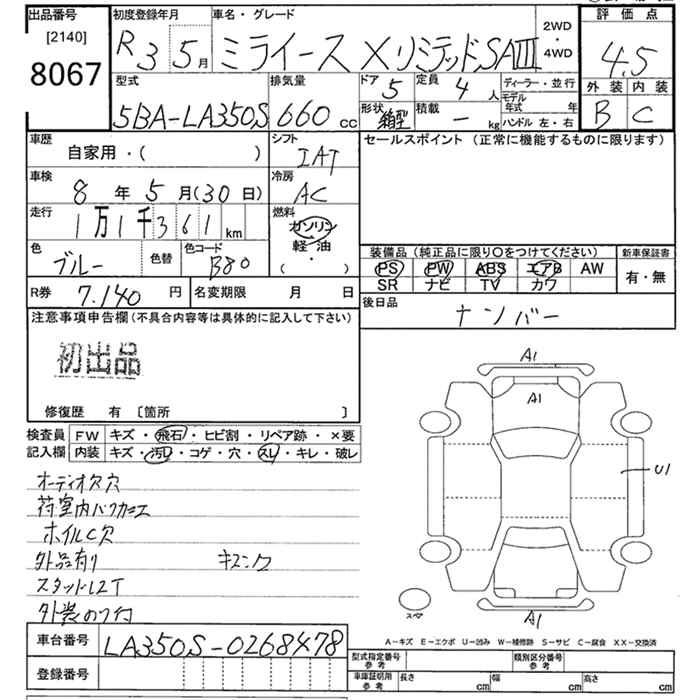 出品番号
[2140]
8067
初度登録年月
R 3 5月
車名・グレード
ミライース X リミテッド SAⅢ
2WD
・
4WD
評価点
4.5
外装 内装
B C
型式
5BA-LA350S
排気量
660 cc
ドア
5
定員
4 人
形状
箱型
積載
- kg
ディーラー・並行
モデル年式 年
ハンドル 左・右
車歴
自家用・( )
シフト
IAT
車検
8 年 5 月(30 日)
冷房
AC
走行
1万1千361 km
燃料
ガソリン
軽・油
・
( )
色
ブルー
色替
色コード
B80
R券 7.140 円
名変期限 月 日
セールスポイント (正常に機能するものに限ります)
装備品 (純正品に限り〇をつけてください)
PS PW ABS エアB AW
SR ナビ TV カワ
新車保証書
有・無
後日品
ナンバー
注意事項申告欄(不具合内容等は具体的に記入して下さい)
初出品
修復歴 有 [箇所 ]
検査員
記入欄
FW キズ・飛石・ヒビ割・リペア跡・×要
内装 キズ・汚レ・コゲ・穴・スレ・キレ・破レ
オーディオ欠穴
荷室内
ホイルC欠
外品有り
スタッドレスT
A1
A1
U1
スペア
A1
A-キズ E-エクボ U-凹み W-補修跡 S-サビ C-腐食 XX-交換済
車台番号
LA350S-0268478
登録番号
型式指定番号
参考
類別区分番号
参考
車庫証明用
参考
長さ cm 幅 cm 高さ cm